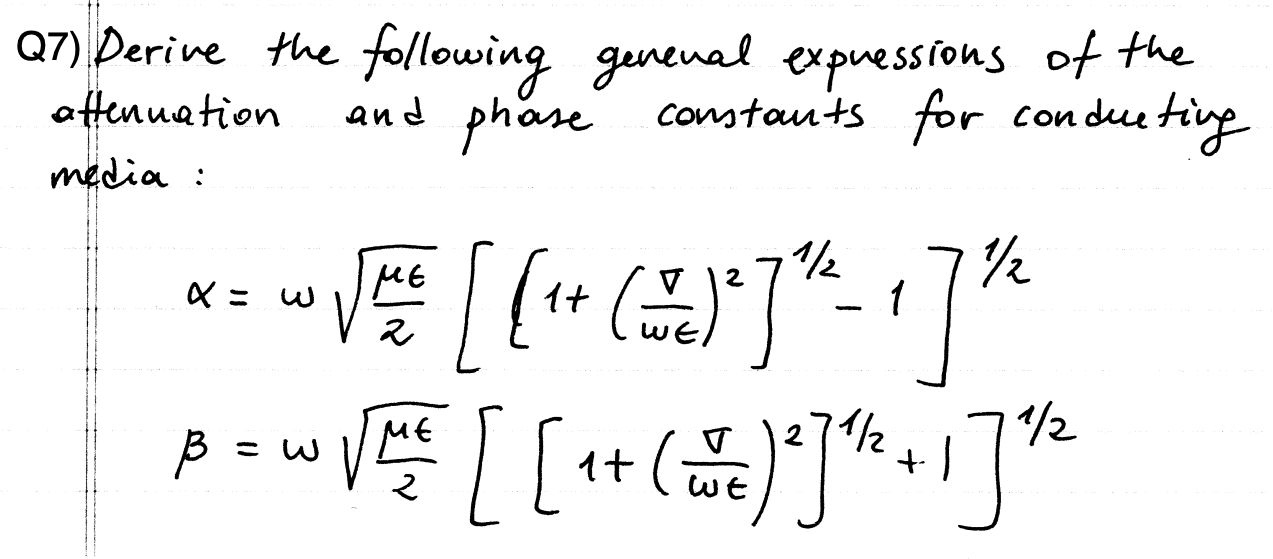 Q7) Derive the following general expressions of the
attenuation and phase constants for conducting
media :
α = ω √(με/2) [ [1+ (σ/ωε)²]^1/2 - 1 ]^1/2
β = ω √(με/2) [ [1+ (σ/ωε)²]^1/2 + 1 ]^1/2